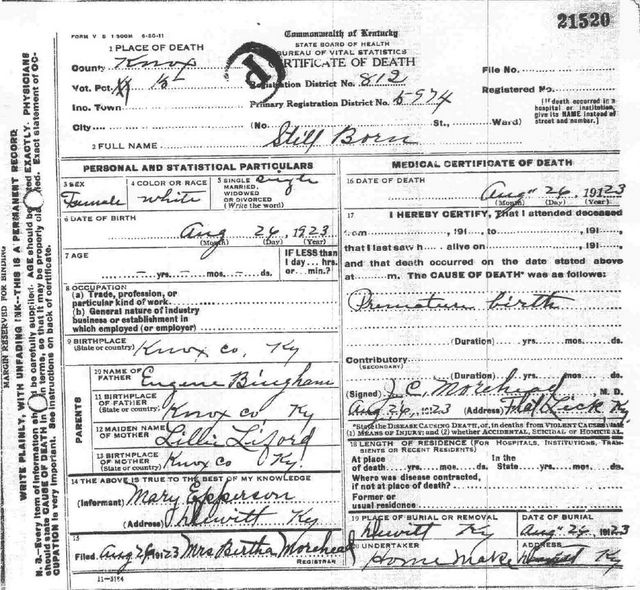 21520
FORM V S 1 300M 6-20-11
Commonwealth of Kentucky
STATE BOARD OF HEALTH
BUREAU OF VITAL STATISTICS
CERTIFICATE OF DEATH
1 PLACE OF DEATH
County Knox
Vot. Pct.
Inc. Town
City
Registration District No. 812
Primary Registration District No. 5-974
(No. St., Ward)
File No.
Registered No.
[If death occurred in a
hospital or institution,
give its NAME instead of
street and number.]
2 FULL NAME Still Born
PERSONAL AND STATISTICAL PARTICULARS
3 SEX
Female
4 COLOR OR RACE
white
5 SINGLE
MARRIED,
WIDOWED
OR DIVORCED
(Write the word)
single
6 DATE OF BIRTH
Aug 26, 1923
(Month) (Day) (Year)
7 AGE
yrs. mos. ds.
IF LESS than
1 day... hrs.
or min.?
8 OCCUPATION
(a) Trade, profession, or
particular kind of work
(b) General nature of industry
business or establishment in
which employed (or employer)
9 BIRTHPLACE
(State or country) Knox Co, Ky
PARENTS
10 NAME OF
FATHER Eugene Bingham
11 BIRTHPLACE
OF FATHER
(State or country) Knox Co Ky
12 MAIDEN NAME
OF MOTHER Lillie Liford
13 BIRTHPLACE
OF MOTHER
(State or country) Knox Co Ky.
14 THE ABOVE IS TRUE TO THE BEST OF MY KNOWLEDGE
(Informant) Mary Epperson
(Address) Hewitt Ky
15
Filed Aug 26, 1923 Mrs Bertha Morehead
REGISTRAR
11-3184
MEDICAL CERTIFICATE OF DEATH
16 DATE OF DEATH
Aug 26, 1923
(Month) (Day) (Year)
17 I HEREBY CERTIFY, That I attended deceased
from 191 to 191
that I last saw h alive on 191
and that death occurred on the date stated above
at m. The CAUSE OF DEATH* was as follows:
Premature birth
(Duration) yrs. mos. ds.
Contributory
(SECONDARY)
(Duration) yrs. mos. ds.
(Signed) J. C. Morehead M. D.
Aug 26, 1923 (Address) Flat Lick Ky
*State the DISEASE CAUSING DEATH, or, in deaths from VIOLENT CAUSES, state
(1) MEANS OF INJURY; and (2) whether ACCIDENTAL, SUICIDAL or HOMICIDAL.
18 LENGTH OF RESIDENCE (FOR HOSPITALS, INSTITUTIONS, TRANSIENTS
OR RECENT RESIDENTS)
At place In the
of death yrs. mos. ds. State yrs. mos. ds.
Where was disease contracted,
if not at place of death?
Former or
usual residence
19 PLACE OF BURIAL OR REMOVAL
Hewitt Ky
DATE OF BURIAL
Aug 26 1923
20 UNDERTAKER
Home Make
ADDRESS
Ky
MARGIN RESERVED FOR BINDING
WRITE PLAINLY, WITH UNFADING INK—THIS IS A PERMANENT RECORD
N. B.—Every item of information should be carefully supplied. AGE should be stated EXACTLY. PHYSICIANS
should state CAUSE OF DEATH in plain terms, so that it may be properly classified. Exact statement of OCCUPATION
is very important. See instructions on back of certificate.